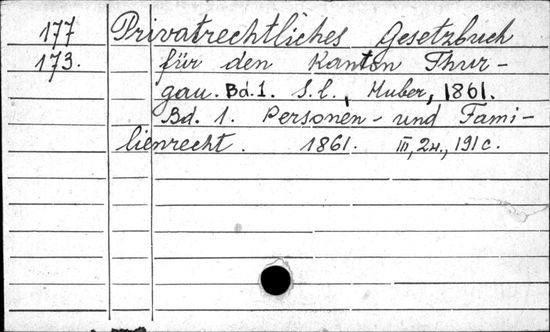 177 Privatrechtliches Gesetzbuch
173. für den Kanton Thur-
gau. Bd. 1. S.l., Huber, 1861.
Bd. 1. Personen- und Fami-
lienrecht. 1861. III, 2н., 191 c.